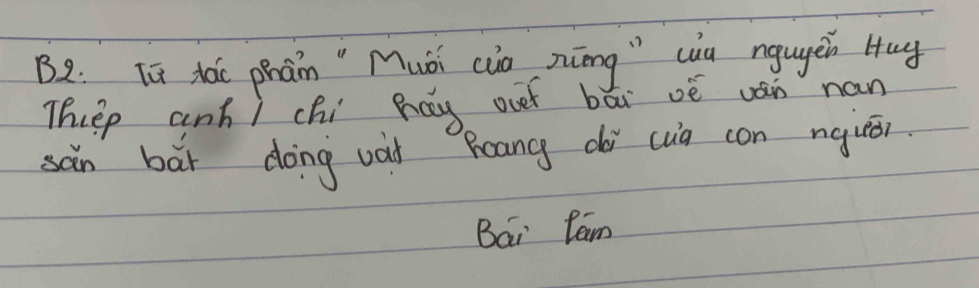 B2: Từ tác phẩm "Muối của rừng" của nguyễn Huy
Thiệp anh / chị hãy viết bài về vấn nạn
săn bắt động vật hoang dã của con người.
Bài làm